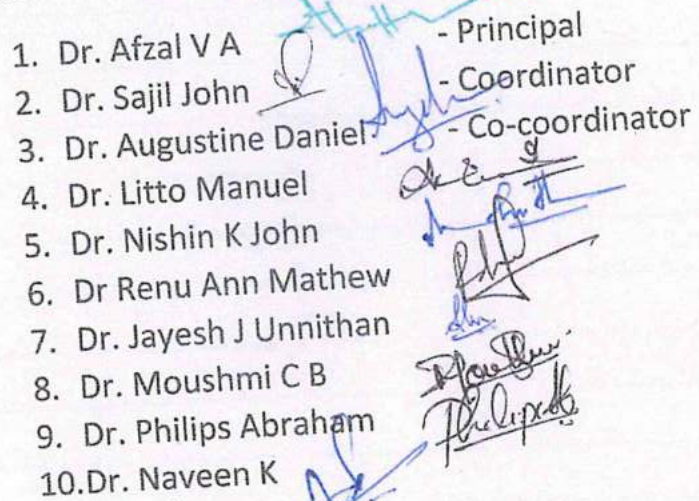 1. Dr. Afzal V A - Principal
2. Dr. Sajil John - Coordinator
3. Dr. Augustine Daniel - Co-coordinator
4. Dr. Litto Manuel
5. Dr. Nishin K John
6. Dr Renu Ann Mathew
7. Dr. Jayesh J Unnithan
8. Dr. Moushmi C B
9. Dr. Philips Abraham
10.Dr. Naveen K